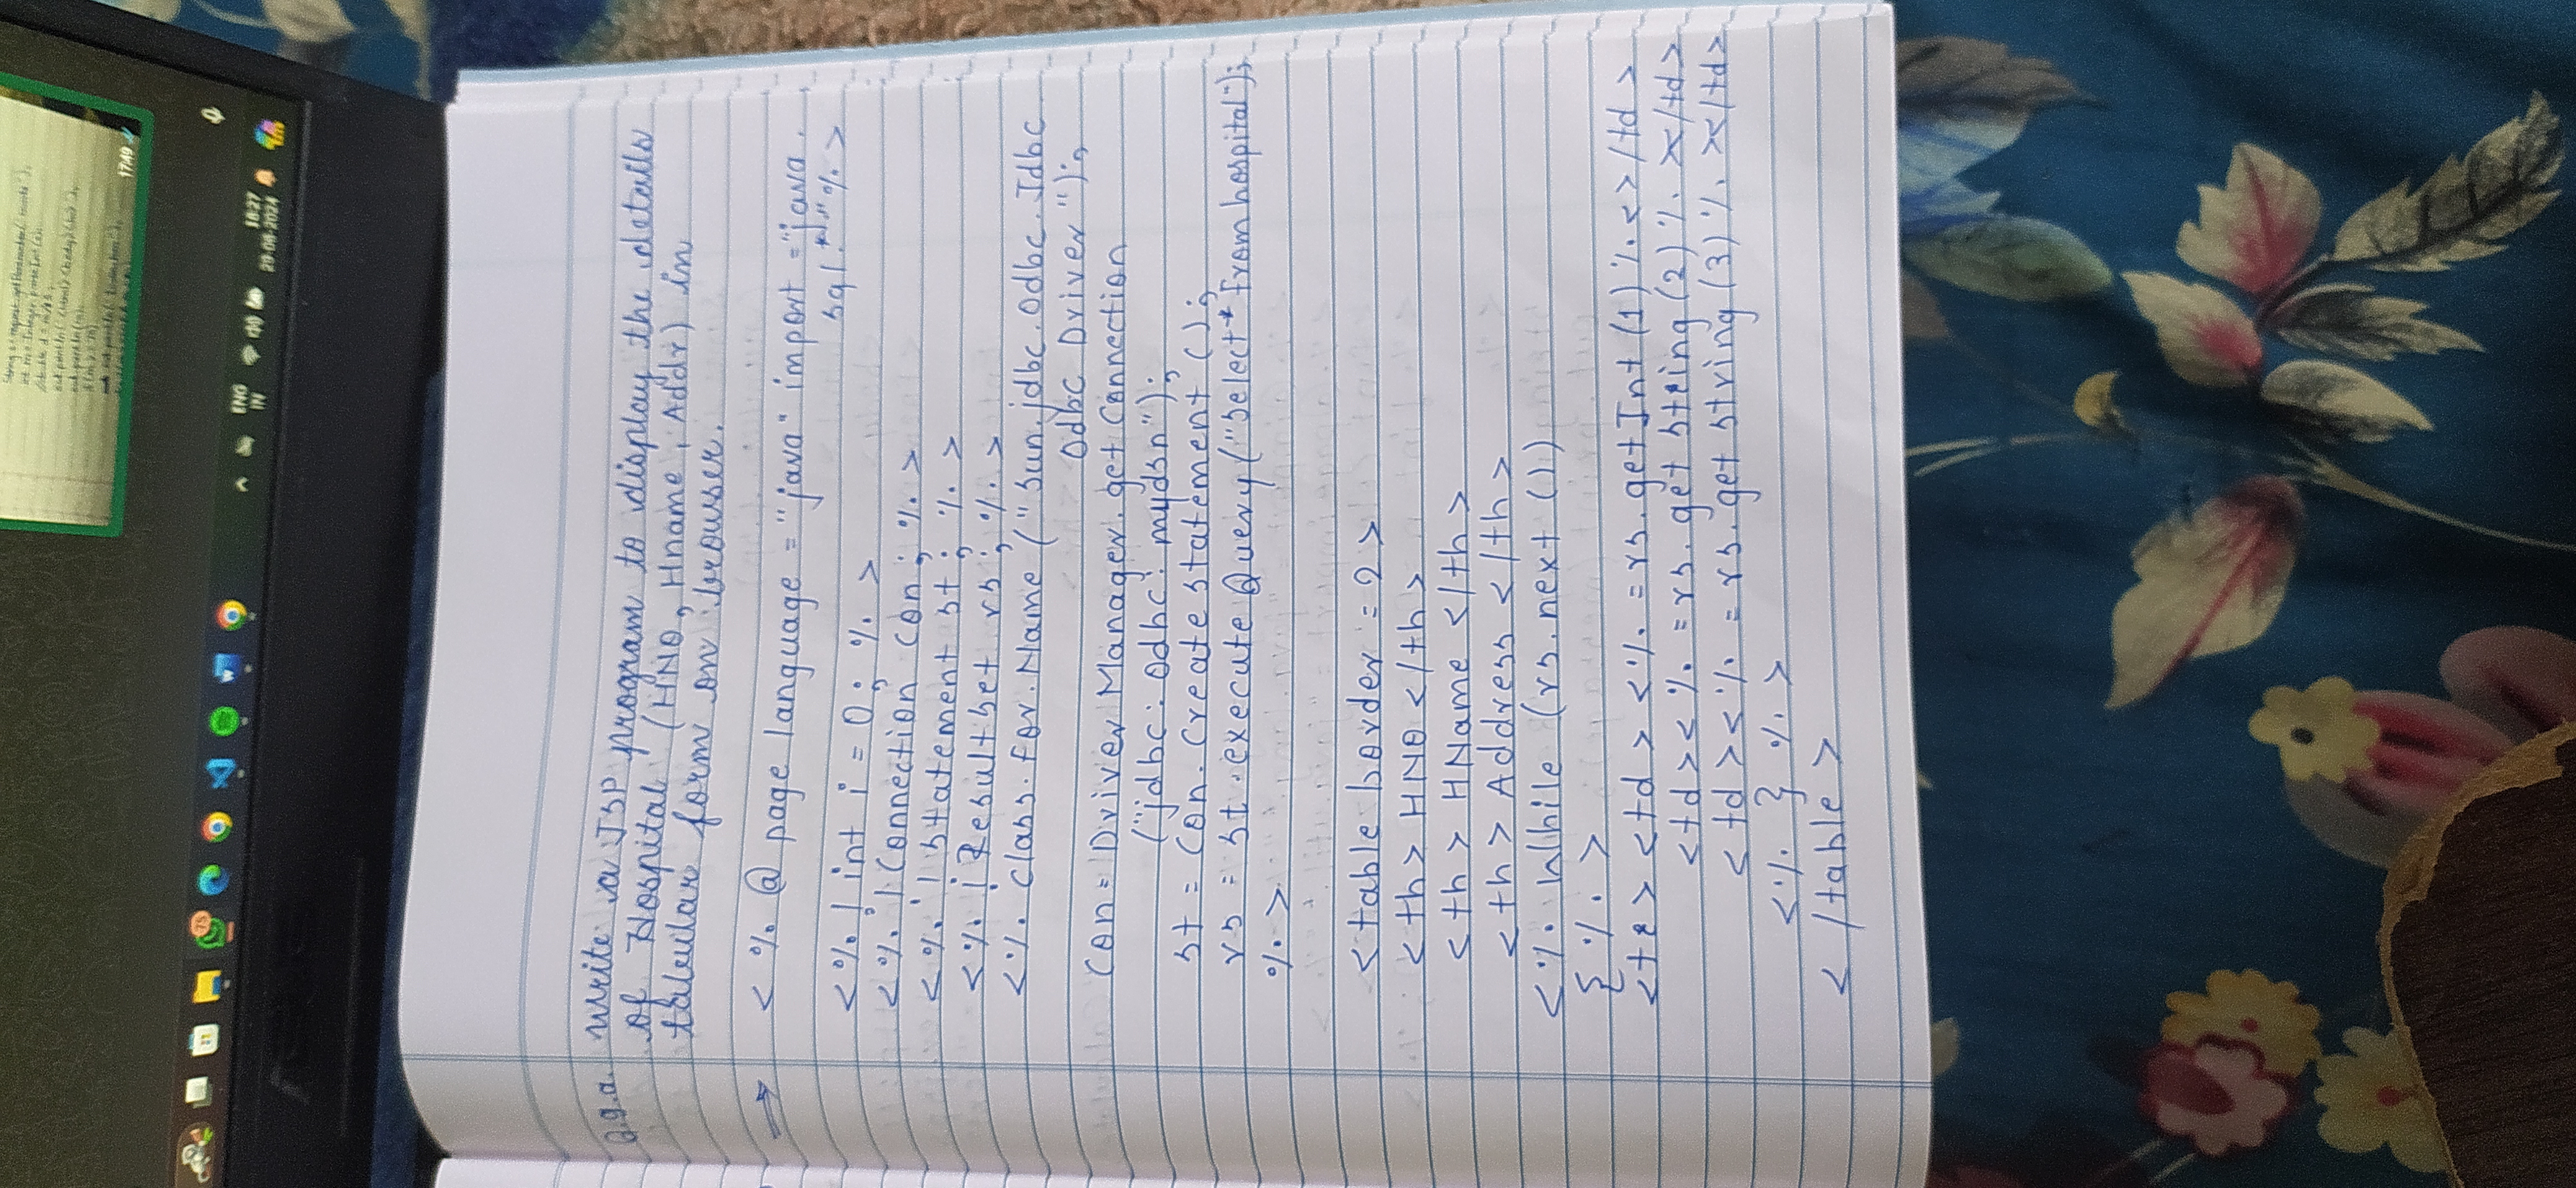 String s = request.getParameter("marks");
int m = Integer.parseInt(s);
out.println(m);
17:49
75
ENG
IN
18:27
29-08-2024
Q.9.a. Write a JSP program to display the details
of Hospital (HNO, Hname, Addr) in
tabular form on browser.
⇒ <%@ page language = "java" import = "java.
sql.*" %>
<%! int i = 0; %>
<%! Connection con; %>
<%! Statement st; %>
<%! ResultSet rs; %>
<% Class.for.Name ("sun.jdbc.odbc.Jdbc
Odbc Driver");
Con = Driver Manager.get Connection
("jdbc:odbc:mydsn");
st = Con.Create statement ();
rs = st.execute Query ("Select * from hospital");
%>
<table border = 2>
<th> HNO </th>
<th> HName </th>
<th> Address </th>
<% While (rs.next ())
{ %>
<tr> <td> <% = rs.getInt (1) %<>/td>
<td><% = rs.get string (2) %></td>
<td><% = rs.get string (3) %></td>
<% } %>
</table>